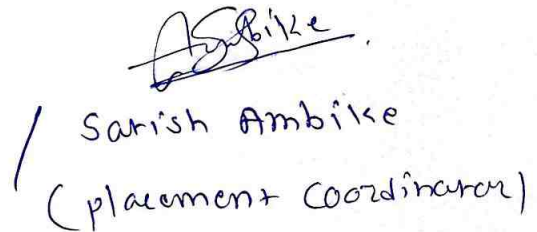 Ambike
/ Satish Ambike
(placement coordinator)